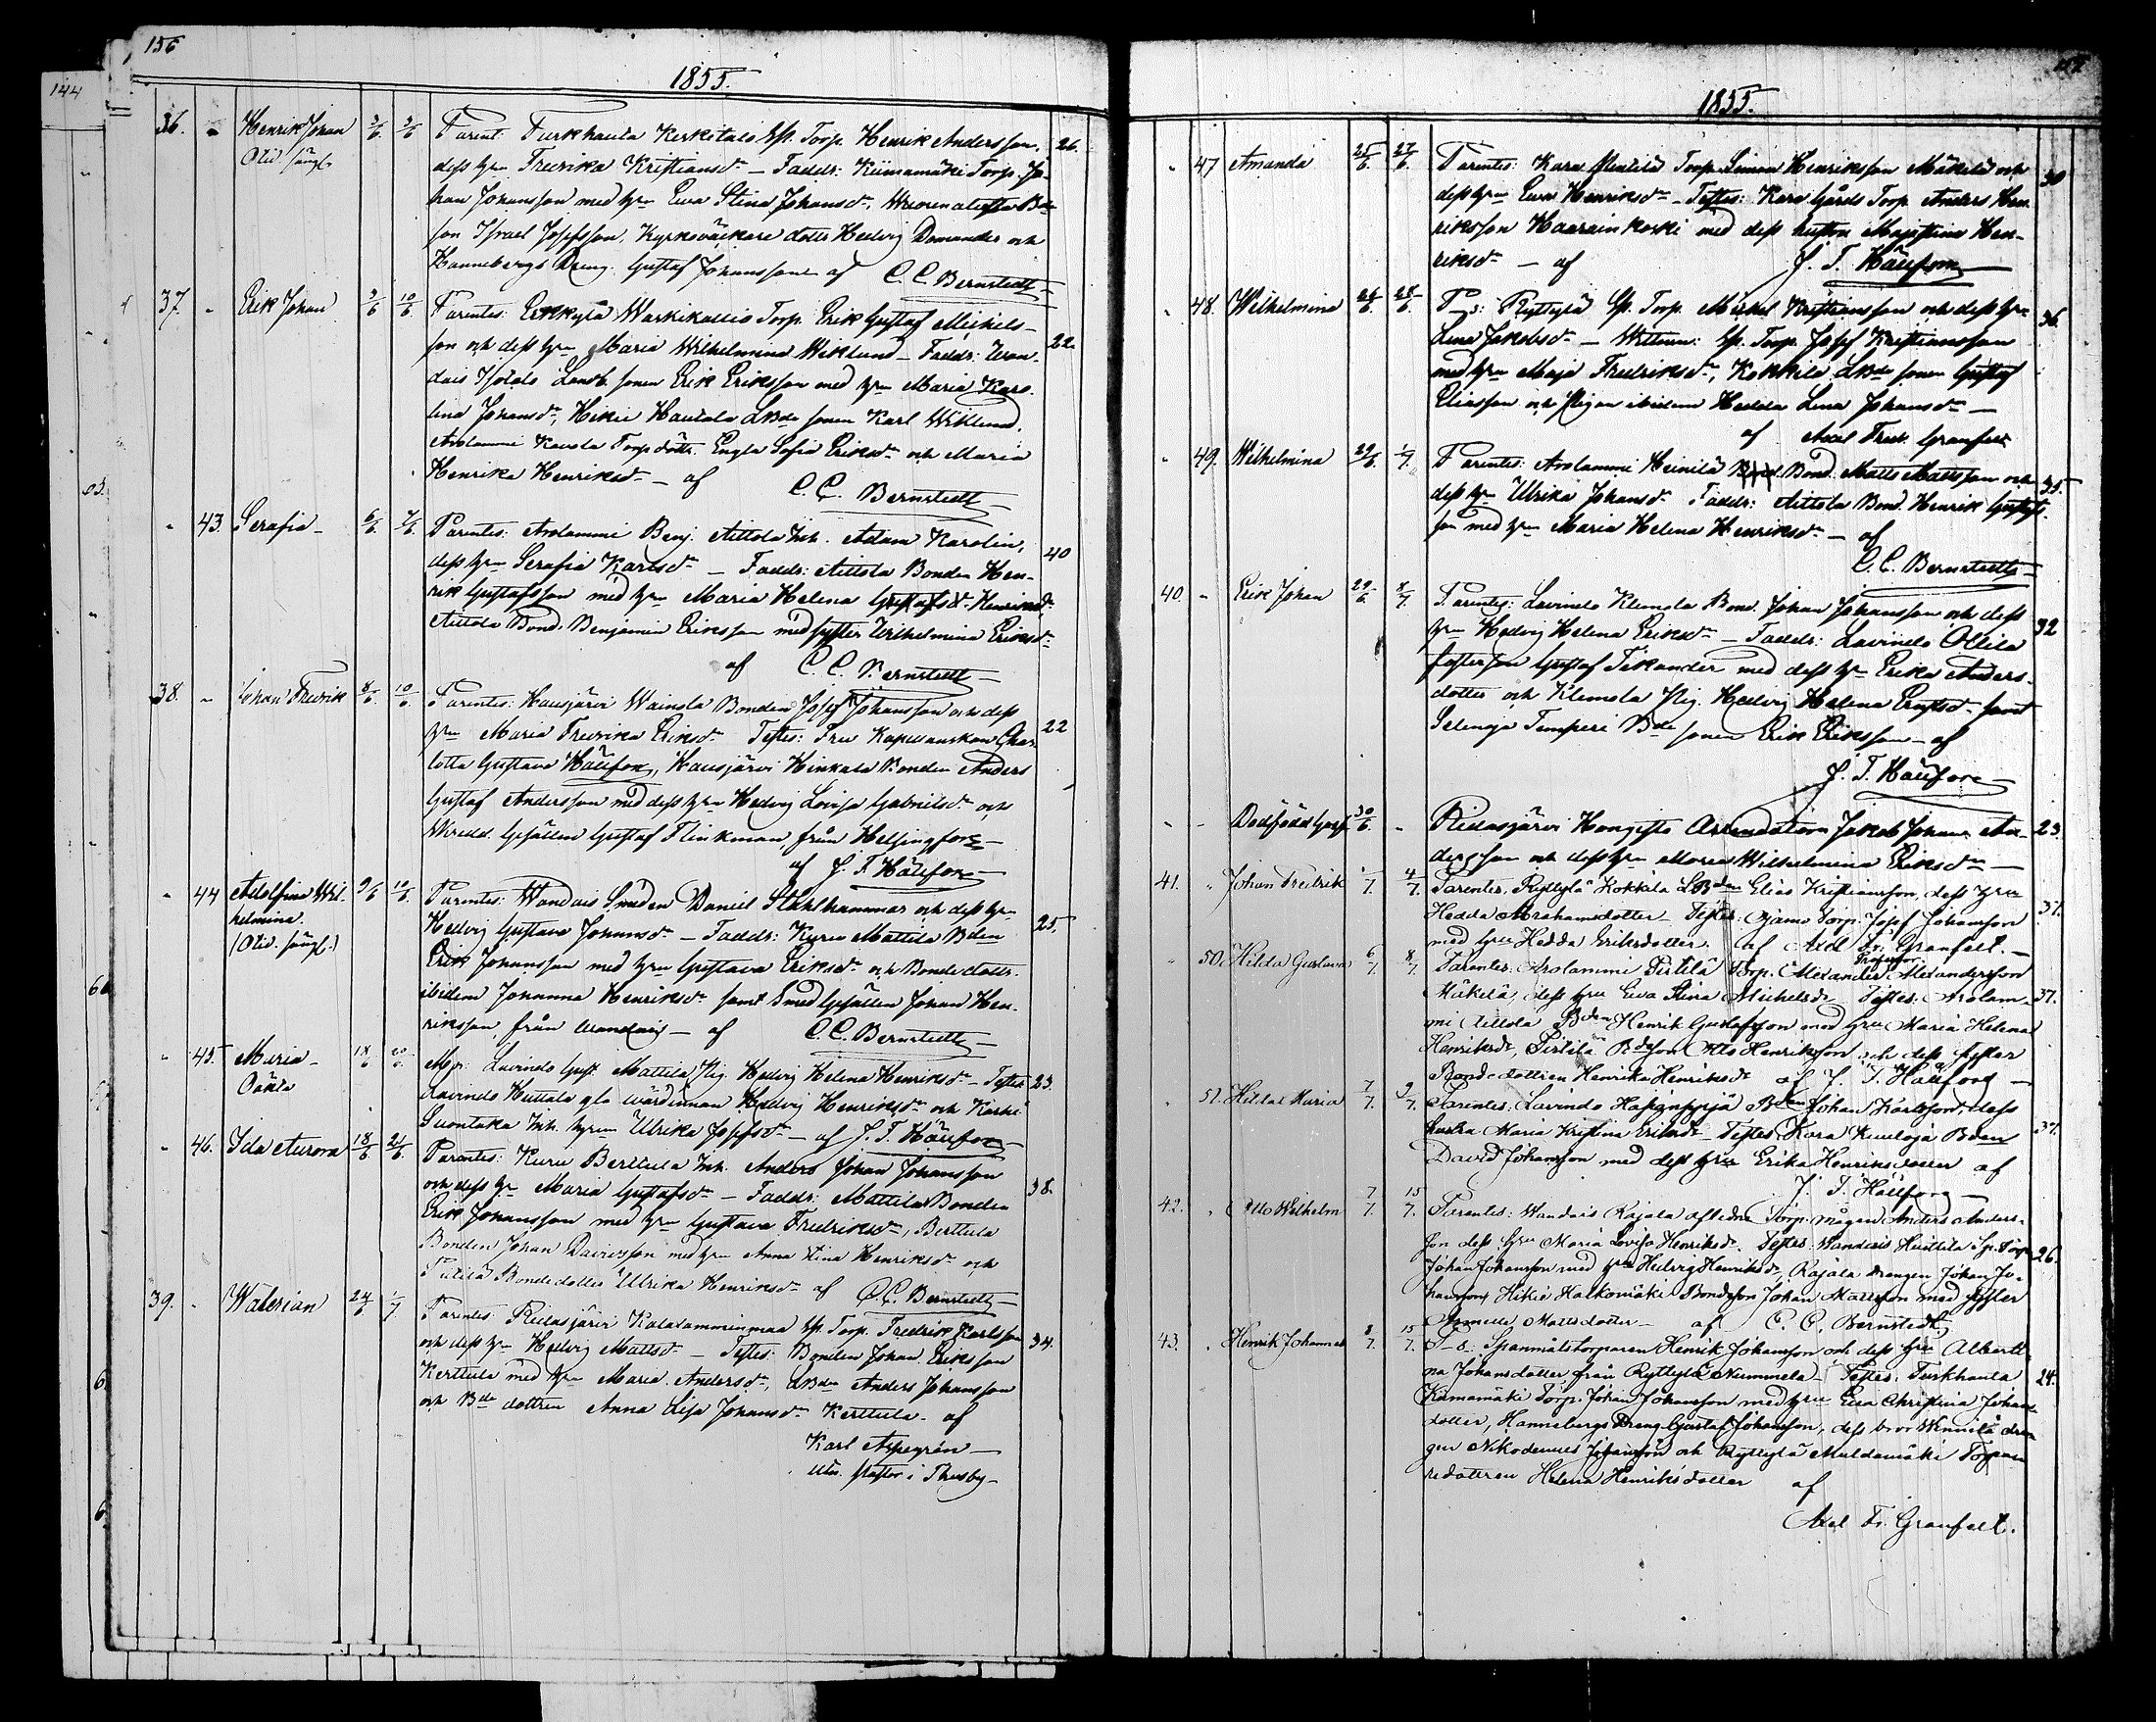 156
1855.
144
36. - Henrik Johan 3/6. 3/6 Parent: Turkhauta Kerkitalo Sp. Torp. Henrik Andersson, 26.
Olid. sängl.
dess hru Fredrika Kristiansdr – Faddr: Kiimamäki Torp. Jo-
han Johansson med hru Ewa Stina Johansdr, Bde
son Israel Josefsson, Kyrkoväckare dottr Hedvig Domander och
Hannebergs Dräng Gustaf Johansson af C. C. Bernstedt
37. - Erik Johan 9/6 10/6. Parentes: Erkkylä Warkikallio Torp. Erik Gustaf Michels-
son och dess hru Maria Wilhelmina Wiklund – Faddr: Wan- 22.
dais Isotalo Landb. sonen Erik Eriksson med hru Maria Karo-
lina Johansdr, Hikiä Hautala LBde sonen Karl Wiklund,
Arolammi Torpdottr. Engla Sofia Eriksdr och Maria
Henrika Henriksdr – af C. C. Bernstedt
- 43 Serafia – 6/6. 7/6. Parentes: Arolammi Benj. Aittola Inh. Adam Karolin,
dess hru Serafia Karlsdr – Faddr: Aittola Bonden Hen- 40
rik Gustafsson med hru Maria Helena Gustafsdr Henriksdr
Aittola Bond. Benjamin Eriksson med syster Wilhelmina Eriksdr
af C. C. Bernstedt
38. - Johan Fredrik 8/6 10/6. Parentes: Hausjärvi Wainola Bonden Josef Johansson och dess
hru Maria Fredrika Eriksdr Testes: Fru Kapellanskan Char- 22
lotta Gustava Hällfors, Hausjärvi Hinkala Bonden Anders
Gustaf Andersson med dess hru Hedvig Lovisa Gabrielsdr och
Skredd. Gesällen Gustaf Flinkman från Helsingfors
af J. T. Hällfors
- 44 Adolfina Wil- 9/6 10/6. Parentes: Wandais Smeden Daniel Stålhammar och dess hru
helmina. Hedvig Gustava Johansdr – Faddr: Kuru Mattila Bden 25.
(Olid. sängl.)
Erik Johansson med hru Gustava Eriksdr och Bondedottr.
ibidem Johanna Henriksdr samt Smed Gesällen Johan Hen-
riksson, från Wandais – af C. C. Bernstedt
- 45. Maria – 18/6 20/6. Mr: Lavindo Gust. Mattila Pig. Hedvig Helena Henriksdr – Testes 23.
Oäkta
Lavindo Huttala gla wärdinnan Hedvig Henriksdr och Karhi
Suontaka Inh. hrun Ulrika Josefsdr – af J. T. Hällfors
- 46. Ida Aurora 18/6 24/6. Parentes: Kuru Berttula Inh. Anders Johan Johansson
och dess hru Maria Gustafsdr – Faddr: Mattila Bonden 38.
Erik Johansson med hru Gustava Fredriksdr, Berttula
Bonden Johan Davidsson med hru Anna Stina Henriksdr och
Bondedotter Ulrika Henriksdr af C. C. Bernstedt
39. - Walerian 24/6 1/7. Parentes: Ridasjärvi Kalatammenmaa Sp. Torp. Fredrik Karlsson
och dess hru Hedvig Mattsdr – Testes: Bonden Johan Eriksson 34.
Kerttula med hru Maria Andersdr, LBde Anders Johansson
och Bde dottren Anna Lisa Johansdr Kerttula – af
Karl Aspegrén –
Pastor i Thusby –
1855.
- 47 Amanda 25/6. 27/6. Parentes: Kara Torp. Simon Henriksson Mäkelä och
dess hru Ewa Henriksdr – Testes: Kara Gårds Torp. Anders Hen- 30
riksson Haarainkoski med dess hustru Majastina Hen-
riksdr – af J. T. Hällfors
- 48. Wilhelmina 26/6 28/6. P–s: Ryttylä Sp. Torp. Mickel Kristiansson och dess hru 36.
Lena Jakobsdr – Wittnen: Sp. Torp. Josef Kristiansson
med hru Maja Fredriksdr, Kokkila LBde sonen Gustaf
Eliasson och Pigan ibidem Hedda Lena Johansdr –
af Axel Fredr. Granfelt
- 49. Wilhelmina 29/6. 1/7. Parentes: Arolammi Heinilä Bond. Matts Mattsson och 35.
dess hru Ulrika Johansdr Faddr: Aittola Bond. Henrik Gustafs-
son med hru Maria Helena Henriksdr – af
C. C. Bernstedt
40. - Erik Johan 29/6 8/7. Parentes: Lavindo Klemola Bond. Johan Johansson och dess 32
hru Hedvig Helena Eriksdr – Faddr: Lavindo Ollila
fosterson Gustaf Tikander med dess hru Erika Anders-
dotter och Klemola Pig. Hedvig Helena Ernstsdr samt
Selenoja Temperi Bde sonen Erik Eriksson – af
J. T. Hällfors
- - Dödfödd Goss. 30/6. - Ridasjärvi Hongisto Arrendatorn Jakob Johan An- 23.
dersson och dess hru Maria Wilhelmina Eriksdr –
41. - Johan Fredrik 1/7. 4/7. Parentes: Ryttylä Kokkila LBden Elias Kristiansson, dess hru
Hedda Abrahamsdotter – Testes: Ojamo Torp. Josef Johansson 37.
med hru Hedda Eriksdotter. af Axel Fr. Granfelt. –
- 50. Hilda Gustava 6/7. 8/7. Parentes: Arolammi Pirtilä Torp. Alexander Alexandersson
Mäkelä, dess hru Ewa Stina Michelsdr Testes: Arolam- 37.
mi Aittola Bden Henrik Gustafsson med hru Maria Helena
Henriksdr, Pirtilä Bdeson Otto Henriksson och dess syster
Bondedottren Henrika Henriksdr af J. T. Hällfors –
- 51. Hilda Maria 7/7. 9/7. Parentes: Lavindo Bden Johan Karlsson, dess
hustru Maria Kristina Eriksdr Testes: Kara Kuuloja Bden 37.
David Johansson med dess hru Erika Henriksdotter af
J. T. Hällfors –
42. - Otto Wilhelm 7/7. 15/7. Parentes: Wandais Rajala aflidne Torp. mågen Anders Anders-
son dess hru Maria Lovisa Henriksdr. Testes: Wandais Huittila Sp. Torp. 26
Johan Johansson med hru Hedvig Henriksdr, Rajala drengen Johan Jo-
hansson, Hikiä Halkomäki Bondeson Johan Mattsson med syster
Mattsdotter – af C. C. Bernstedt.
43. - Henrik Johannes 8/7. 15/7. P–s: Spannmålstorparen Henrik Johansson och dess hru Alberti-
na Johansdotter från Ryttylä Nummela – Testes: Turkhauta 24.
Kiimamäki Torp. Johan Johansson med hru Ewa Christina Johans-
dotter, Hannebergs Dreng Gustaf Johansson, dess bror Wennilä dren-
gen Nikodemus Johansson och Ryttylä Muldamäki Torpa-
redottren Helena Henriksdotter af
Axel Fr. Granfelt.